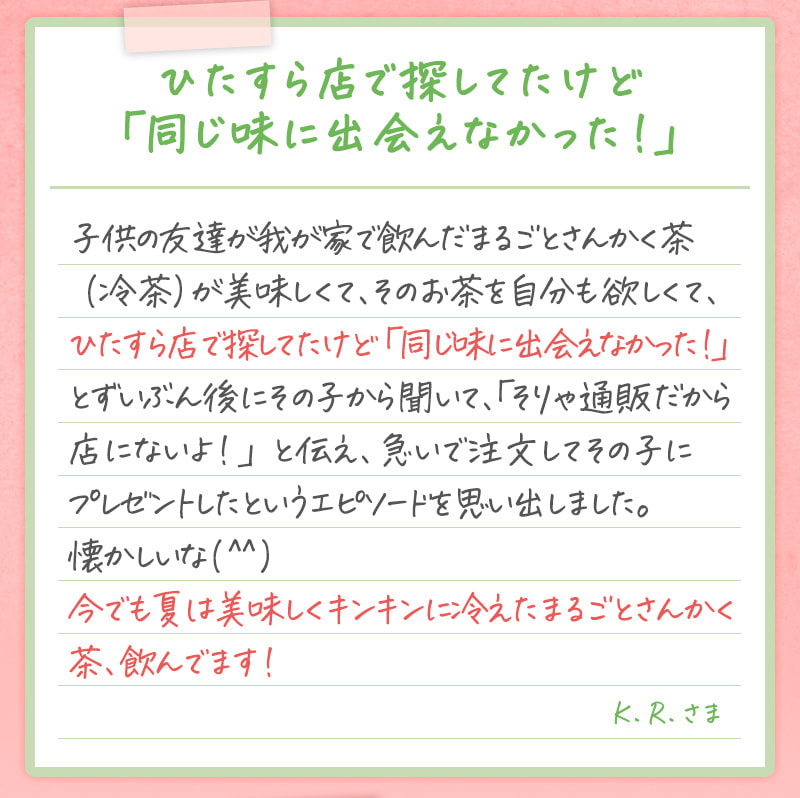 ひたすら店で探してたけど
「同じ味に出会えなかった！」
子供の友達が我が家で飲んだまるごとさんかく茶
（冷茶）が美味しくて、そのお茶を自分も欲しくて、
ひたすら店で探してたけど「同じ味に出会えなかった！」
とずいぶん後にその子から聞いて、「そりゃ通販だから
店にないよ！」と伝え、急いで注文してその子に
プレゼントしたというエピソードを思い出しました。
懐かしいな(^^)
今でも夏は美味しくキンキンに冷えたまるごとさんかく
茶、飲んでます！
K.R.さま